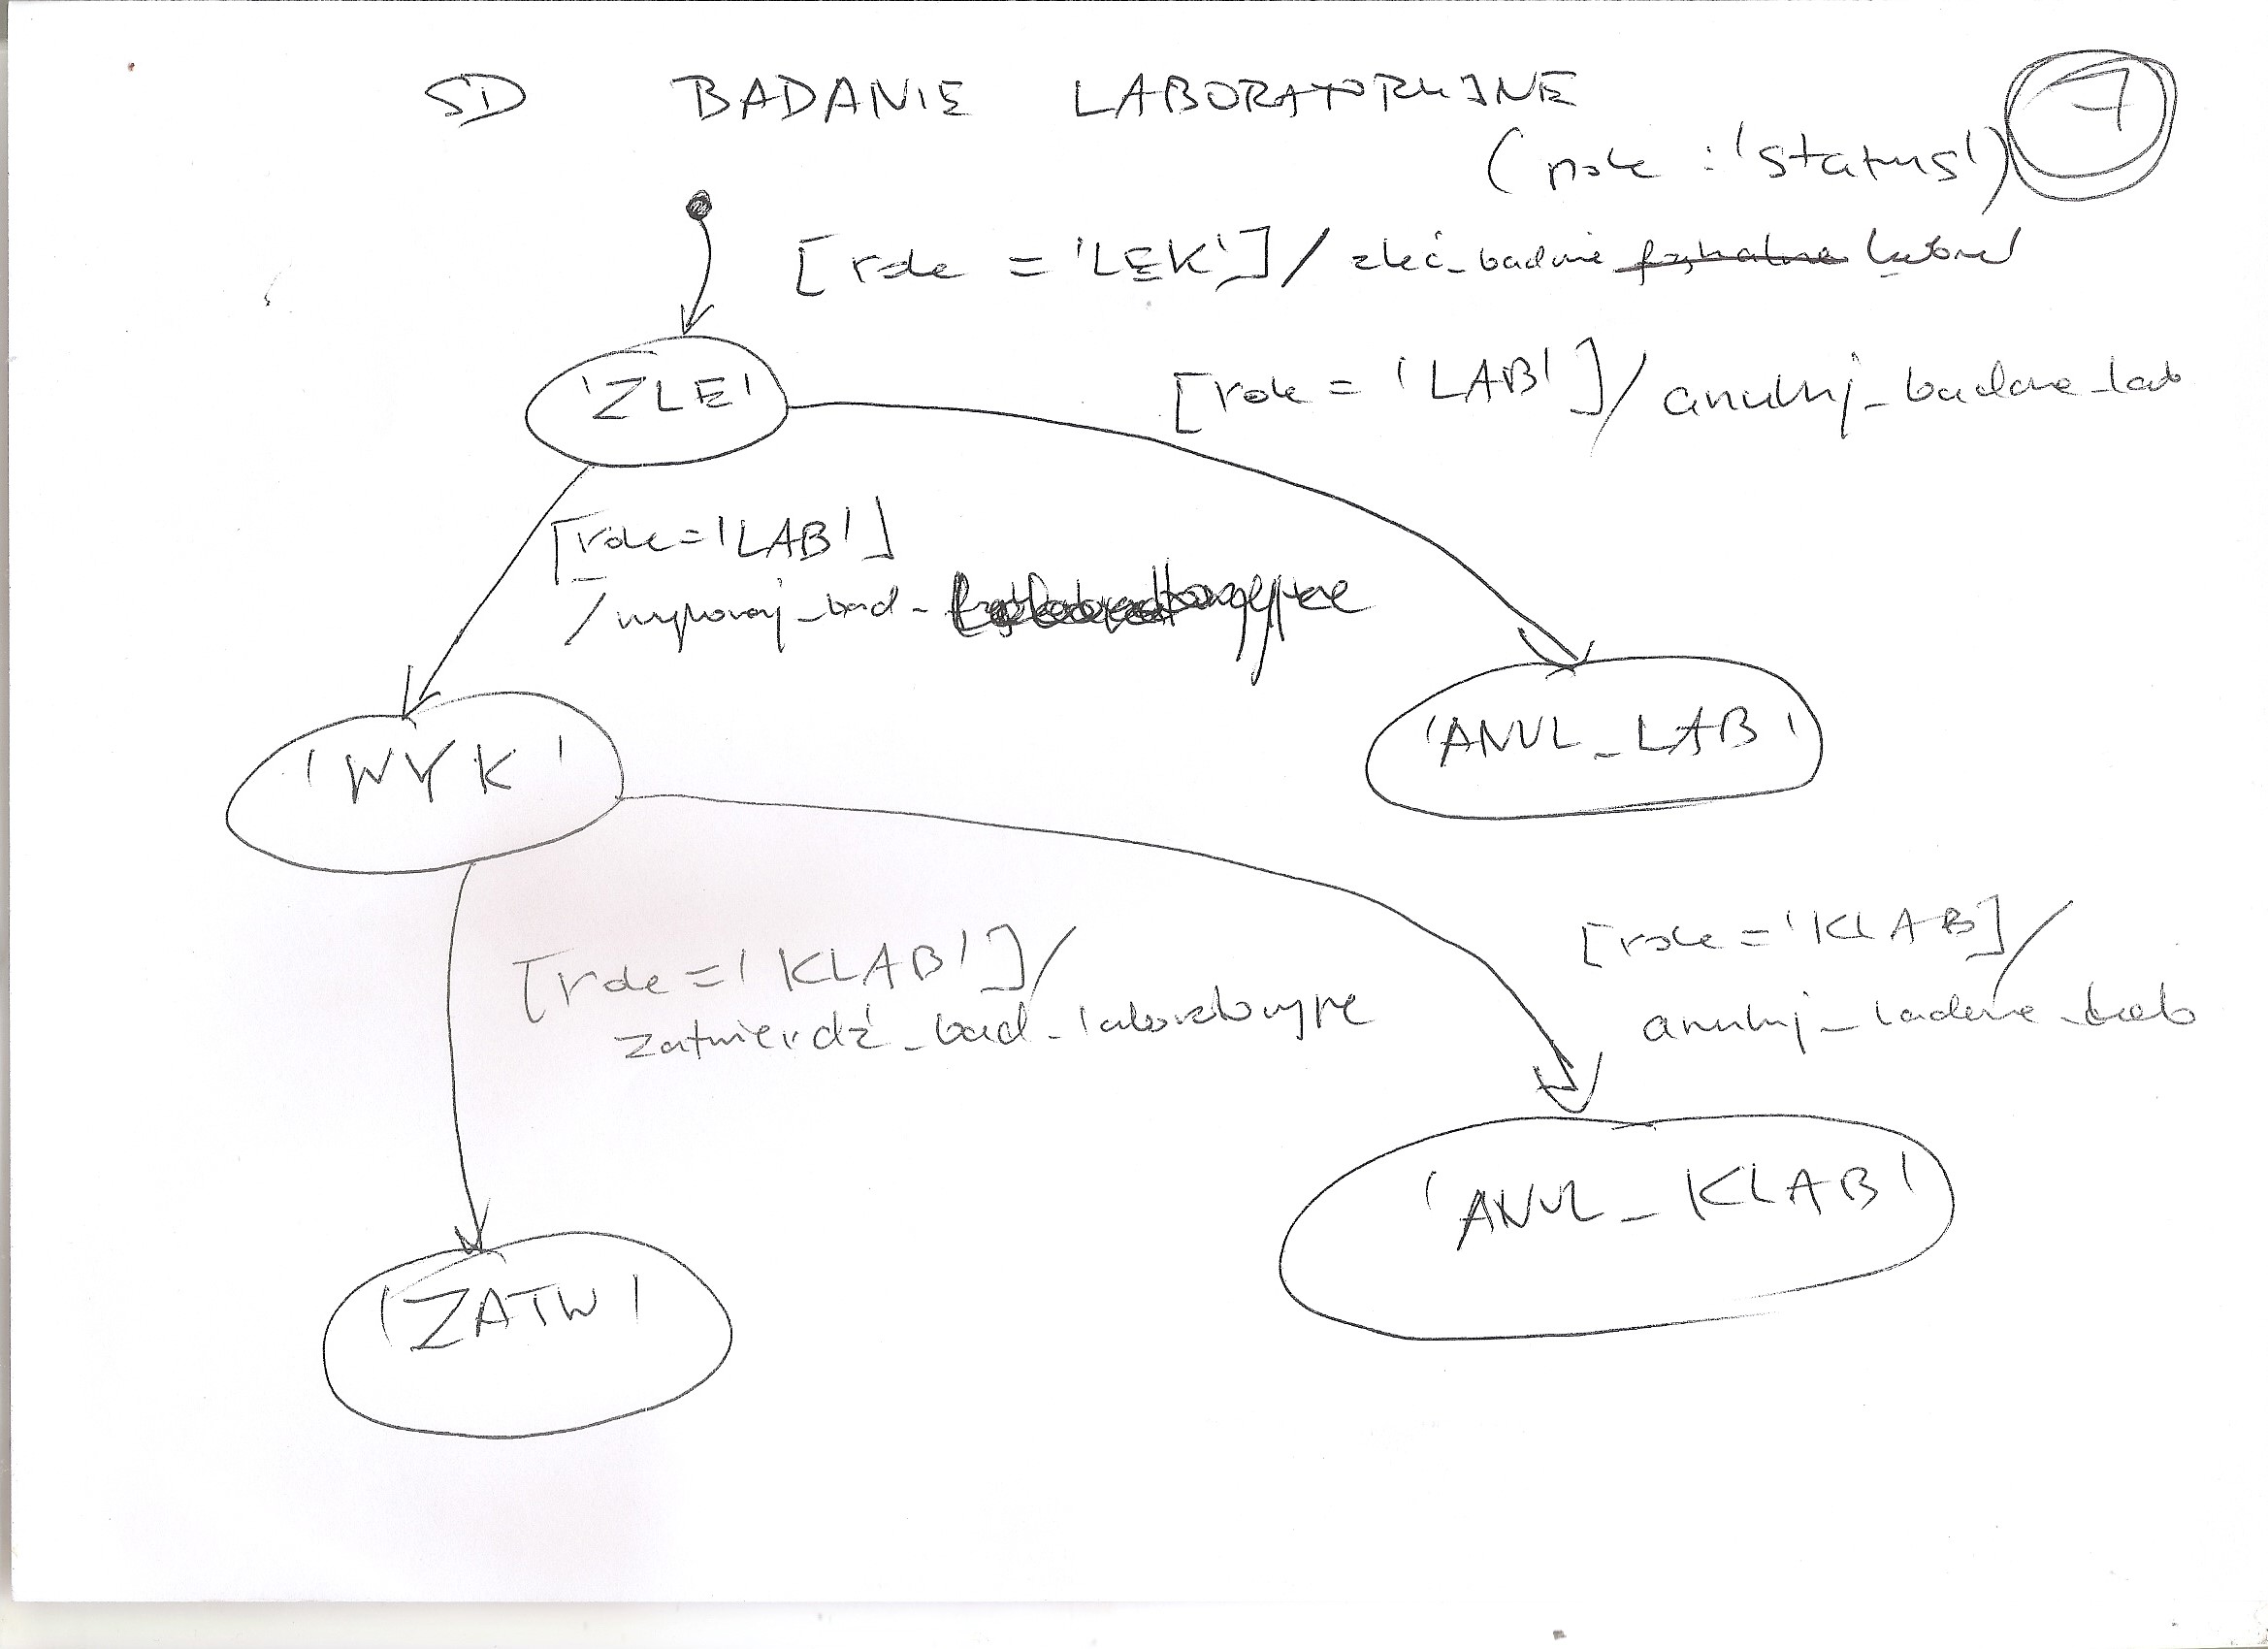 SD BADANIE LABORATORYJNE
7
(pole : 'status')
[role = 'LEK'] / zleć_badanie laborat
'ZLE'
[role = 'LAB'] / anuluj_badanie_lab
[role = 'LAB']
/ wykonaj_bad_
'WYK'
'ANUL_LAB'
[role = 'KLAB'] /
zatwierdź_bad_laboratoryjne
[role = 'KLAB] /
anuluj_badanie_lab
'ZATW'
'ANUL_KLAB'